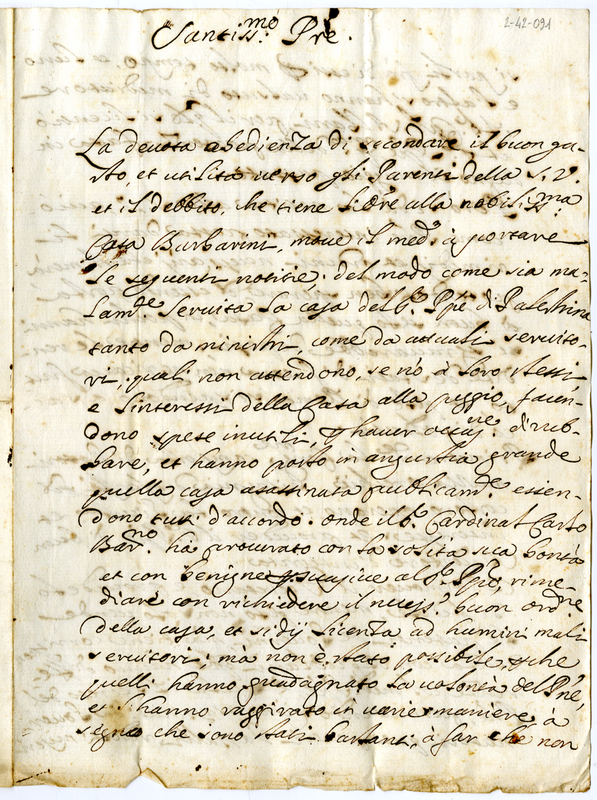 2-42-091
Santiss.mo Pre.
La devota obedienza di secondare il buon gu-
sto, et utilità verso gli Parenti della S. V.
et il debbito, che tiene l'Ore alla nobiliss.ma
Casa Barbarini, move il med.o à portare
le seguenti notitie, del modo come sia ma-
lam.te servita la casa del S.r Ppē di Palestrina
tanto da ministri, come da attuali servito-
ri, quali non attendono, se nō à loro stessi,
e l'interessi della Casa alla peggio, facen-
dono spese inutili, p haver occas.ne di rub-
bare, et hanno posto in angustia grande
quella casa asassinata publicam.te essen-
dono tutti d'accordo. onde il S.r Cardinal Carlo
Bar.no ha procurato con la solita sua bontà
et con benigne psuasive al S.r Ppē, rime-
diare con richiedere il necess.o buon ord.ne
della casa, et si dij licenza ad humini mali
servitori; mà non è stato possibile, pche
quelli hanno guadagnato la volontà del Pne,
et l'hanno raggirato in varie maniere à
segno che sono stati bastanti, à far che non